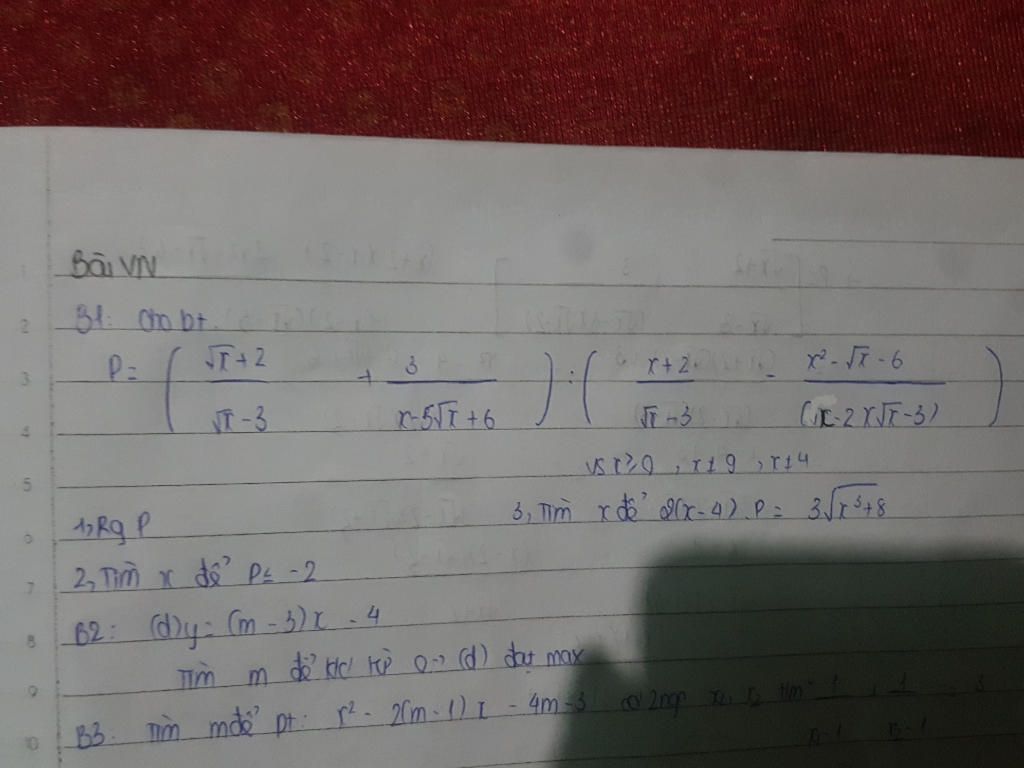 Bài VN
B1: Cho bt.
P = ( (√x + 2)/(√x - 3) + 3/(x - 5√x + 6) ) : ( (x + 2)/(√x - 3) - (x² - √x - 6)/((√x - 2)(√x - 3)) )
vs x ≥ 0, x ≠ 9, x ≠ 4
1, Rg P
3, Tìm x để 2(x - 4).P = 3√(x³ + 8)
2, Tìm x để P ≤ -2
B2: (d) y = (m - 3)x - 4
Tìm m để k/c từ O -> (d) đạt max
B3: Tìm m để pt: x² - 2(m - 1)x - 4m - 3 có 2 ngo x₁, x₂